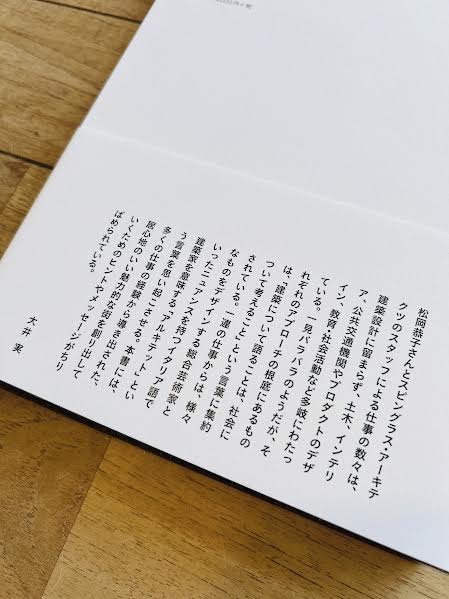 松岡恭子さんとスピングラス・アーキテ
クツのスタッフによる仕事の数々は、
建築設計に留まらず、土木、インテリ
ア、公共交通機関やプロダクトのデザ
イン、教育・社会活動など多岐にわたっ
ている。一見バラバラのようだが、そ
れぞれのアプローチの根底にあるもの
は、「建築について語ることは、社会に
ついて考えること」という言葉に集約
されている。一連の仕事からは、様々
なものをデザインする総合芸術家と
いったニュアンスを持つイタリア語で
建築家を意味する「アルキテット」とい
う言葉を思い起こさせる。本書には、
多くの仕事の経験から導き出された、
居心地のいい魅力的な街を創り出して
いくためのヒントやメッセージがちり
ばめられている。
大井 実